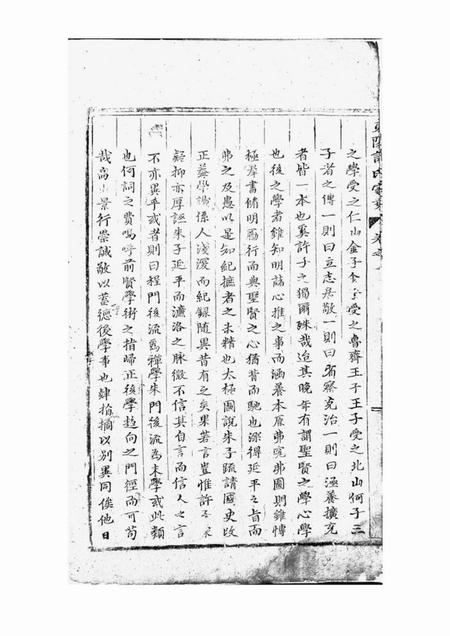 之學受之仁山金子金子受之魯齊王子王子受之北山何子三
子者之傳一則曰立志居敬一則曰省察克治一則曰涵養擴充
者皆一本也奚許子之獨爾殊哉迨其晚年有謂聖賢之學心學
也後之學者雖知明諸心推之事而涵養本原弗究弗圖則雖愽
極羣書備明爲行而與聖賢之心猶背而馳也深得延平之旨而
弗之及愚以是知紀摭者之未精也太極圖說朱子疏請國史改
正蓋學識係人淺深而紀録随異昔有之矣果若言豈惟許子之
疑抑亦厚誣朱子延平而濂洛之脉微不信其自言而信人之言
不亦異乎或者則曰程門後流爲禪學朱門後流爲末學或此類
也何詞之費嗚呼前賢學術之指歸正後學趋向之門徑而可苟
哉高山景行崇誠敬以蓄德後學事也肆指摘以别異同俟他日